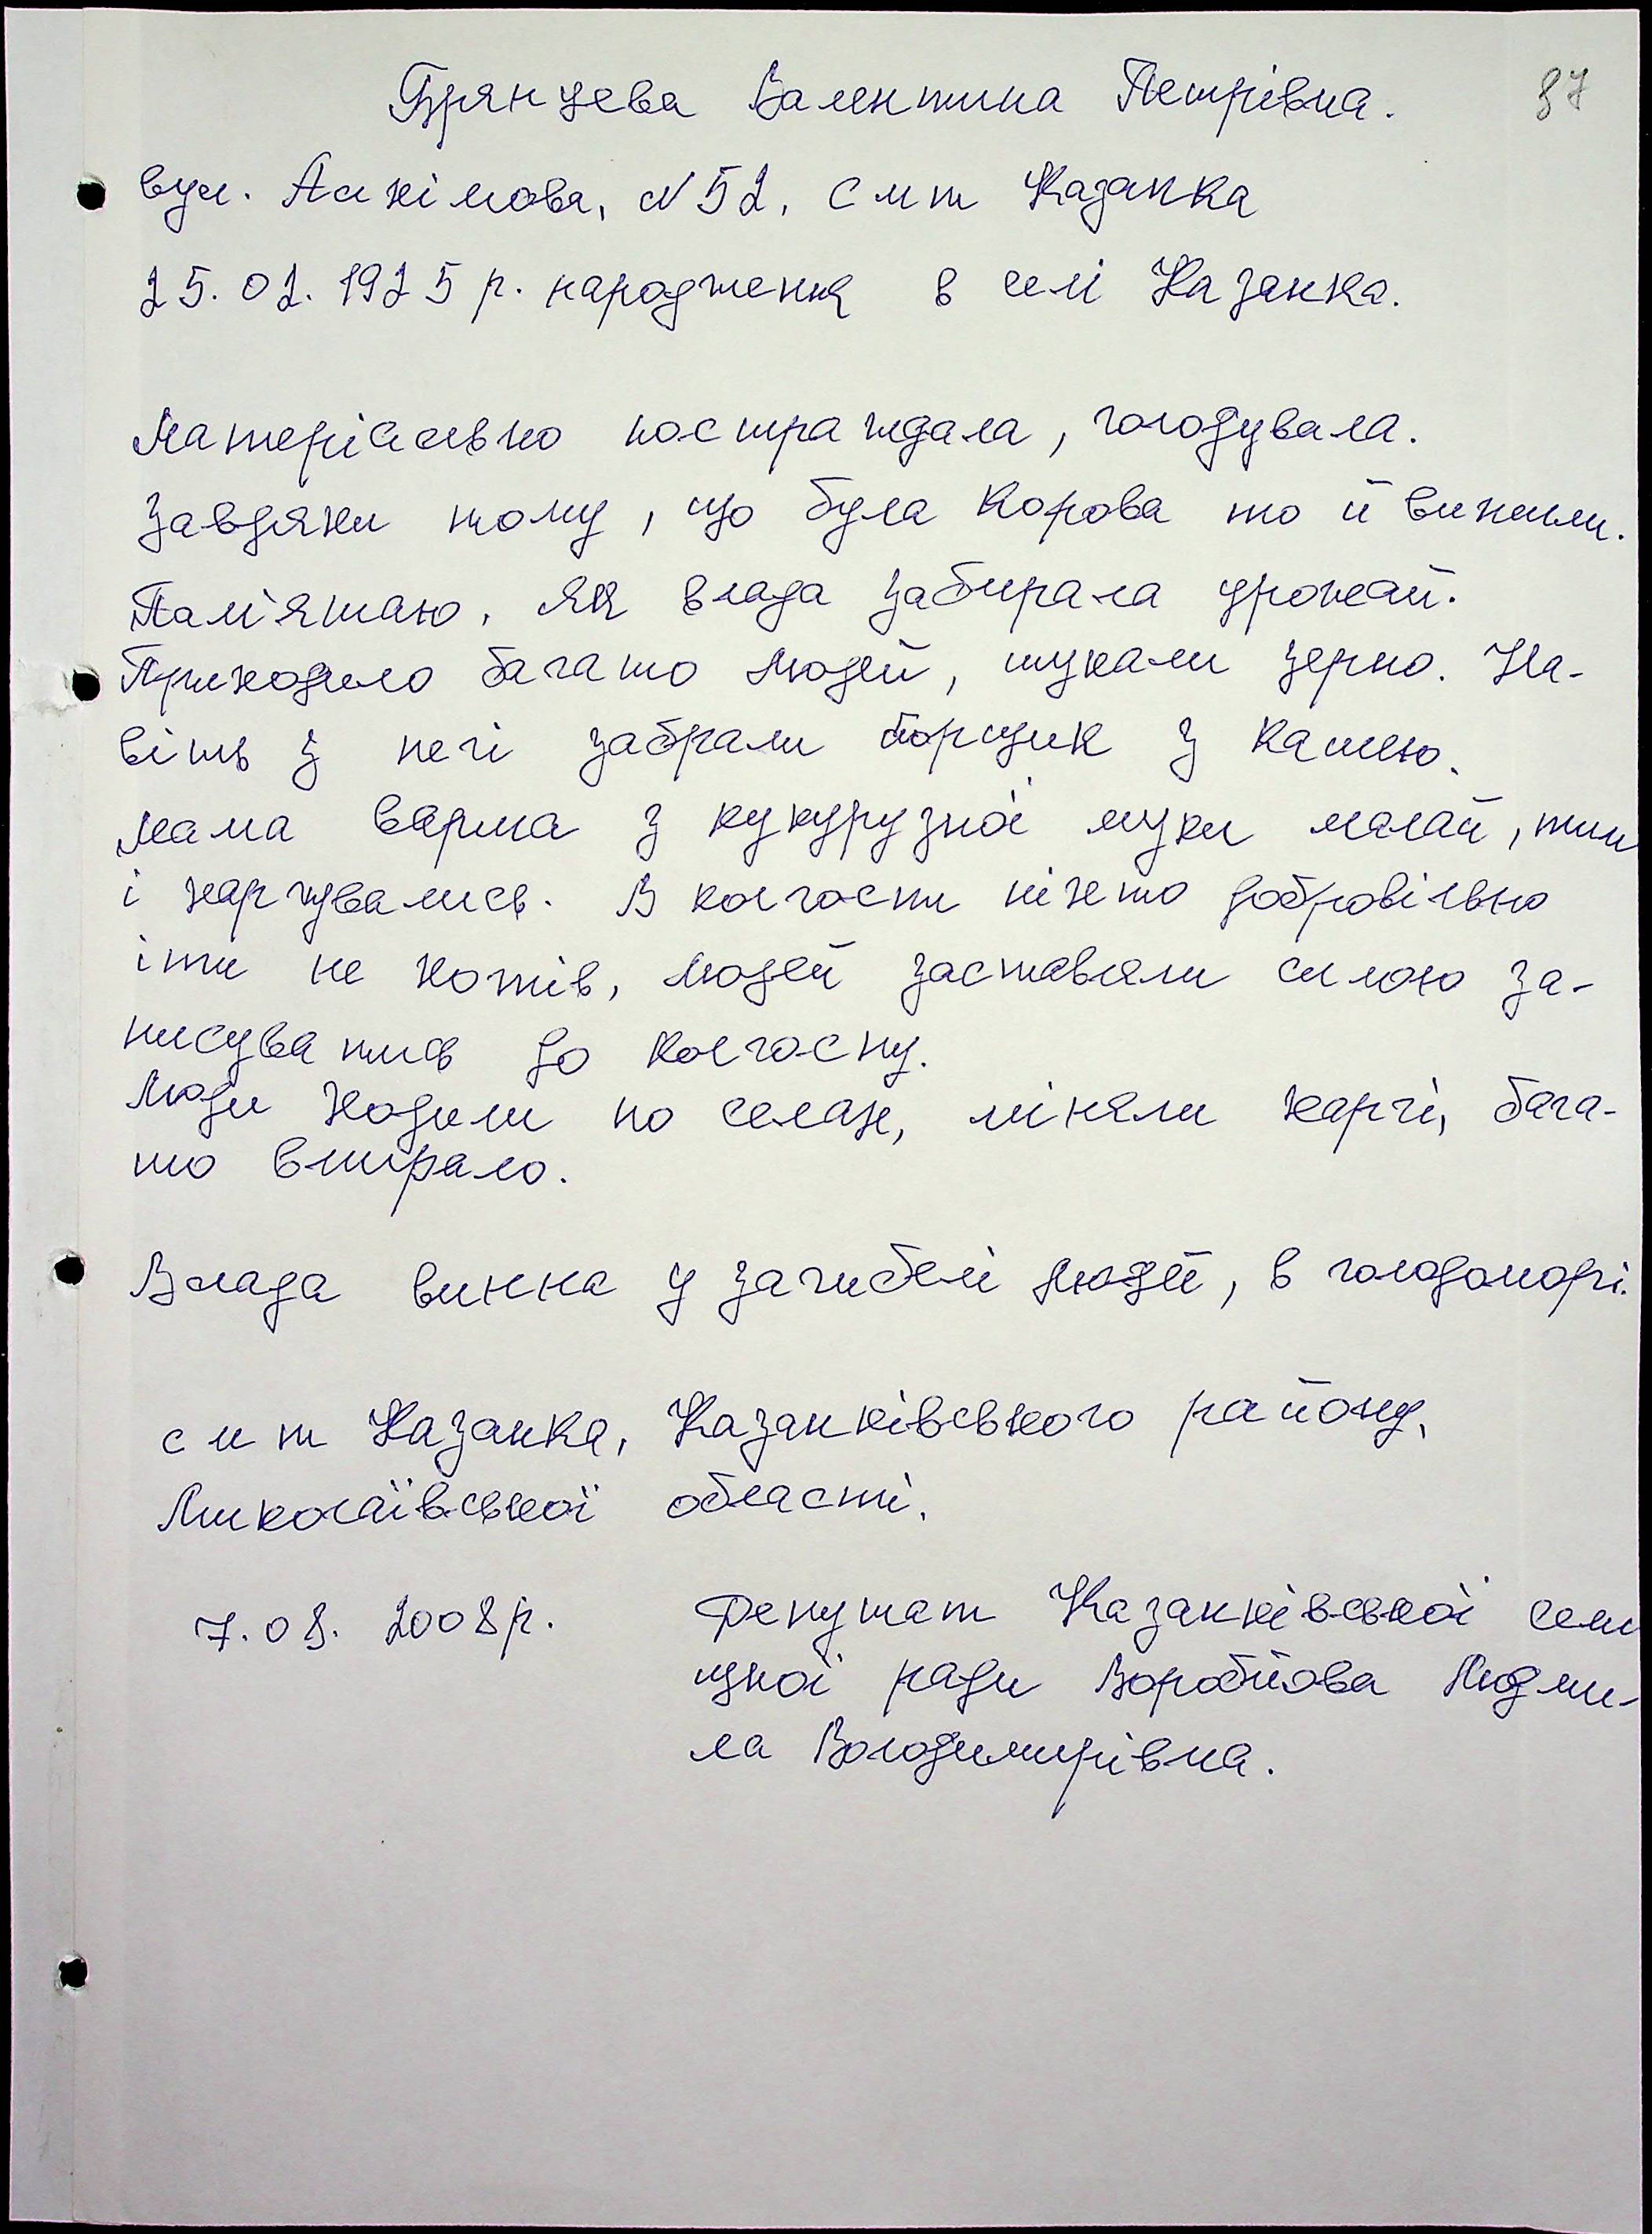 Брянцева Валентина Петрівна. 87
вул. Акімова, №52, смт Казанка
25.02.1925 р. народження в селі Казанка.
Матеріально постраждала, голодувала.
Завдяки тому, що була корова то й вижили.
Пам'ятаю, як влада забирала урожай.
Приходило багато людей, шукали зерно. На-
віть з печі забрали борщик з кашею.
Мама варила з кукурузної муки малай, тим
і харчувались. В колгосп ніхто добровільно
іти не хотів, людей заставляли силою за-
писуватись до колгоспу.
Люди ходили по селах, міняли харчі, бага-
то вмирало.
Влада винна у загибелі людей, в голодоморі.
смт Казанка, Казанківського району,
Миколаївської області.
7.08.2008р. Депутат Казанківської сели
щної ради Воробйова Людми-
ла Володимирівна.